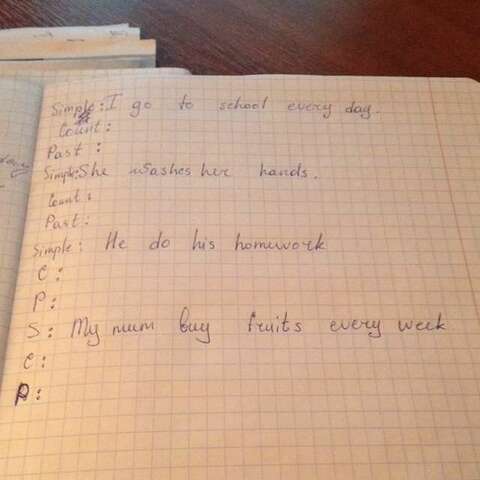 Simple: I go to school every day.
Count:
Past:
Simple: She washes her hands.
Count:
Past:
Simple: He do his homework
C:
P:
S: My mum buy fruits every week
C:
P: